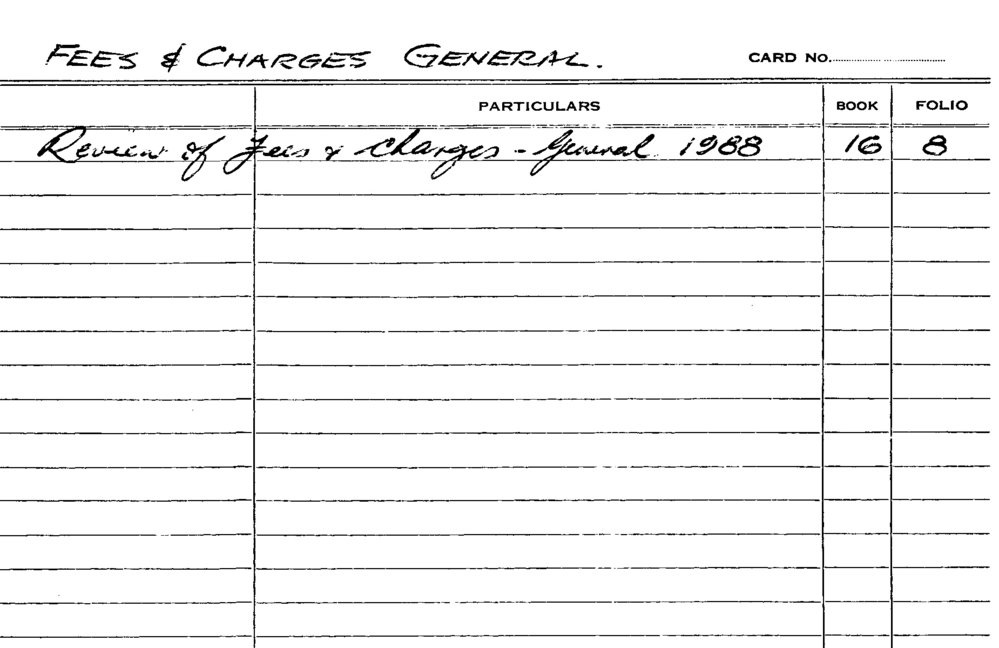 FEES & CHARGES GENERAL. CARD NO.
PARTICULARS BOOK FOLIO
Review of Fees & Charges - General 1988 16 8